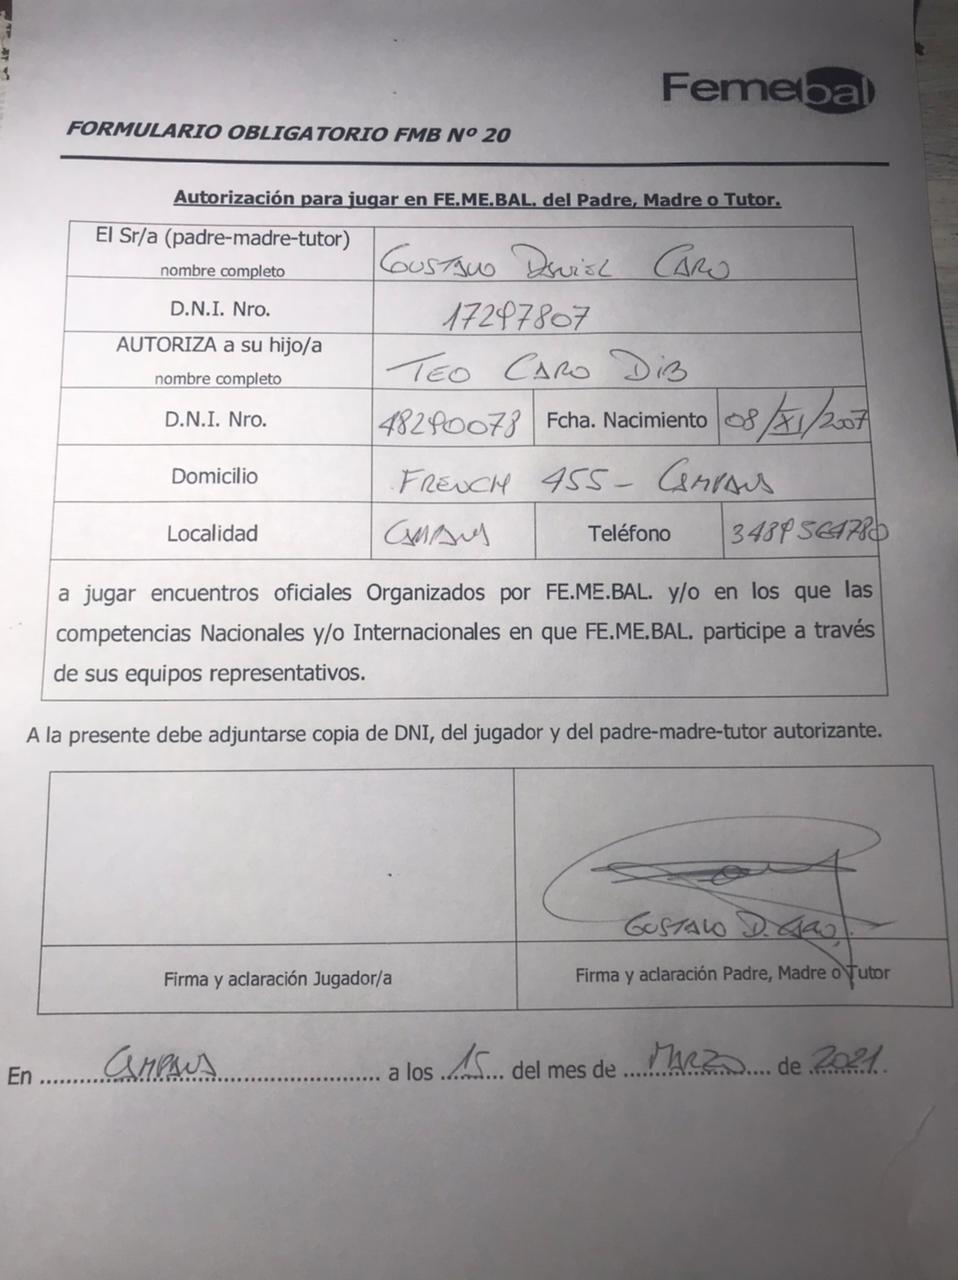 Femebal
FORMULARIO OBLIGATORIO FMB Nº 20
Autorización para jugar en FE.ME.BAL. del Padre, Madre o Tutor.
El Sr/a (padre-madre-tutor)
nombre completo
GUSTAVO DANIEL CARO
D.N.I. Nro.
17297807
AUTORIZA a su hijo/a
nombre completo
TEO CARO DIB
D.N.I. Nro.
48290078
Fcha. Nacimiento
08/XI/2007
Domicilio
FRENCH 455 - CAMPANA
Localidad
CAMPANA
Teléfono
3489564780
a jugar encuentros oficiales Organizados por FE.ME.BAL. y/o en los que las
competencias Nacionales y/o Internacionales en que FE.ME.BAL. participe a través
de sus equipos representativos.
A la presente debe adjuntarse copia de DNI, del jugador y del padre-madre-tutor autorizante.
GUSTAVO D. CARO.
Firma y aclaración Jugador/a
Firma y aclaración Padre, Madre o Tutor
En CAMPANA a los 15 del mes de MARZO de 2021.